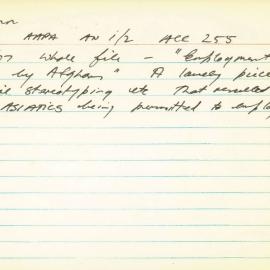 AAPA AN 1/2 ACC 255
whole file - "Employment
by Afghans" A lovely piece
stereotyping etc that resulted
ASIATICS being permitted to employ